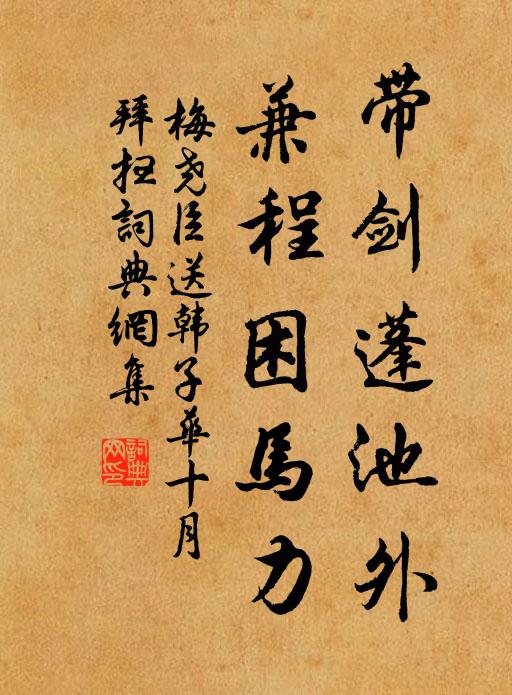 带剑蓬池外
兼程困馬力
梅尧臣送韩子華十月
拜抂詞典網集
詞典網印